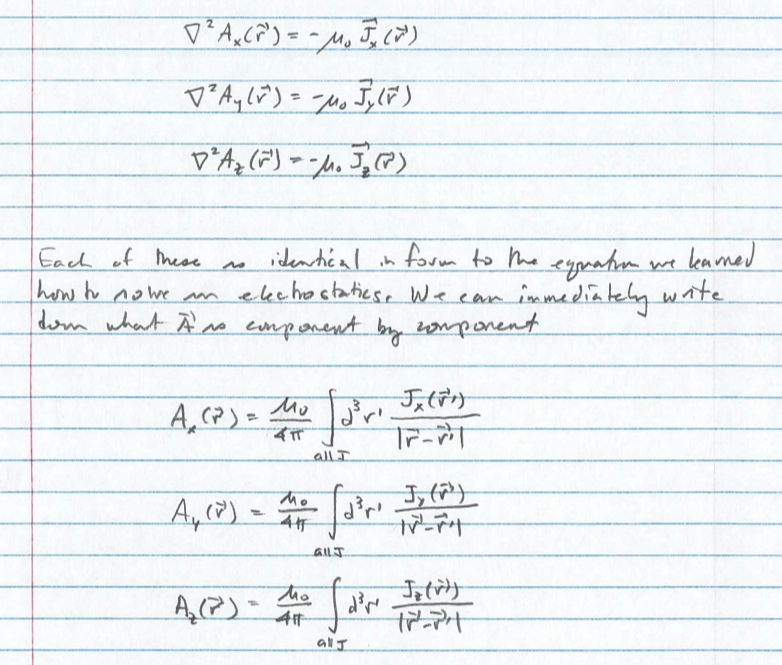 ∇² Aₓ(r⃗) = -μ₀ J⃗ₓ(r⃗)
∇² A_y(r⃗) = -μ₀ J⃗_y(r⃗)
∇² A_z(r⃗) = -μ₀ J⃗_z(r⃗)
Each of these is identical in form to the equation we learned
how to solve in electrostatics. We can immediately write
down what A⃗ is component by component
Aₓ(r⃗) = μ₀/4π ∫_{all J} d³r' Jₓ(r⃗')/|r⃗-r⃗'|
A_y(r⃗) = μ₀/4π ∫_{all J} d³r' J_y(r⃗')/|r⃗-r⃗'|
A_z(r⃗) = μ₀/4π ∫_{all J} d³r' J_z(r⃗')/|r⃗-r⃗'|